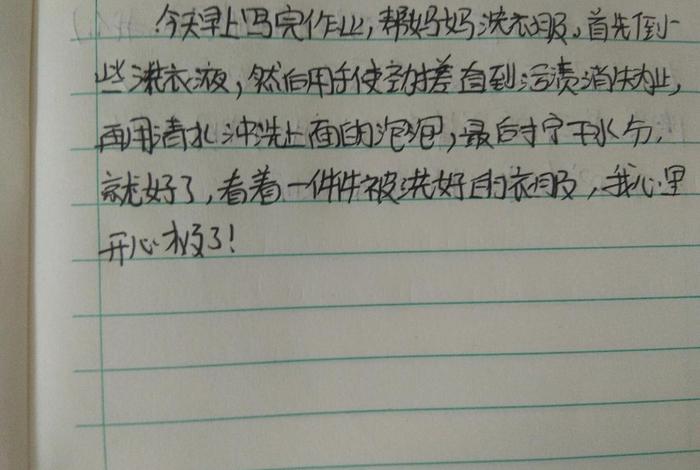 今天早上写完作业,帮妈妈洗衣服。首先倒一
些洗衣液,然后用手使劲搓直到污渍消失为止,
再用清水冲洗上面的泡泡,最后拧干水分,
就好了,看着一件件被洗好的衣服,我心里
开心极了!